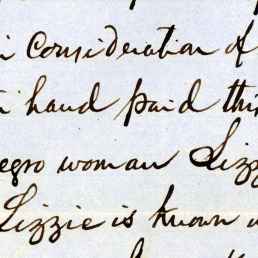 consideration of
hand paid this
egro woman Lizz
Lizzie is known